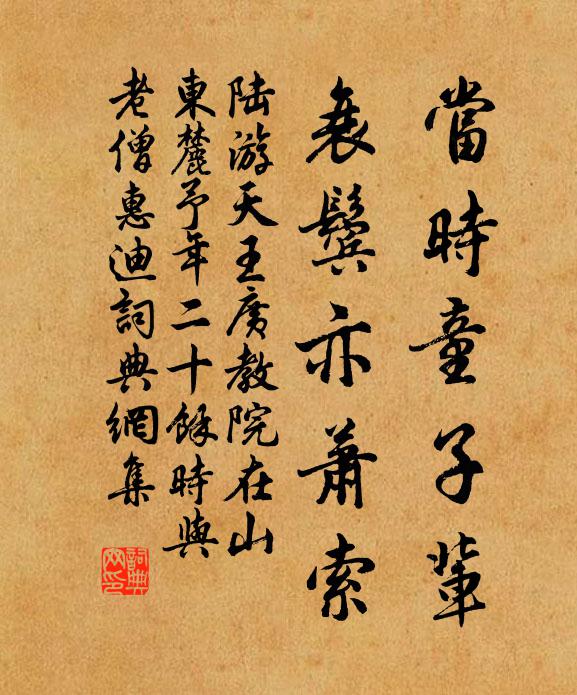 當時童子輩
衰鬢亦蕭索
陸游天王廣教院在山
東麓予年二十餘時與
老僧惠迪詞典網集
詞典
网印